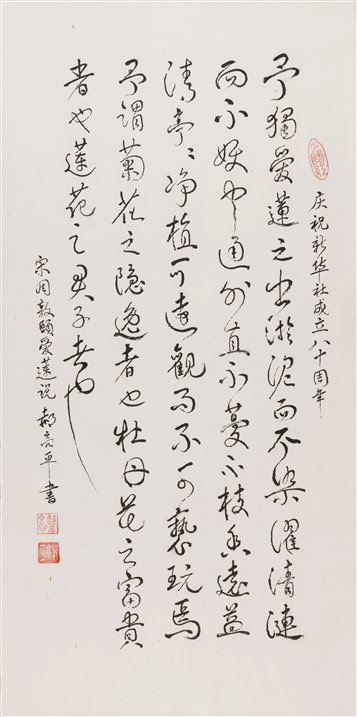 庆祝新华社成立八十周年
予獨愛蓮之出淤泥而不染濯清漣
而不妖中通外直不蔓不枝香遠益
清亭〻净植可遠觀而不可褻玩焉
予謂菊花之隐逸者也牡丹花之富貴
者也蓮花之君子者也
宋周敦頤愛蓮说 郝亮平書